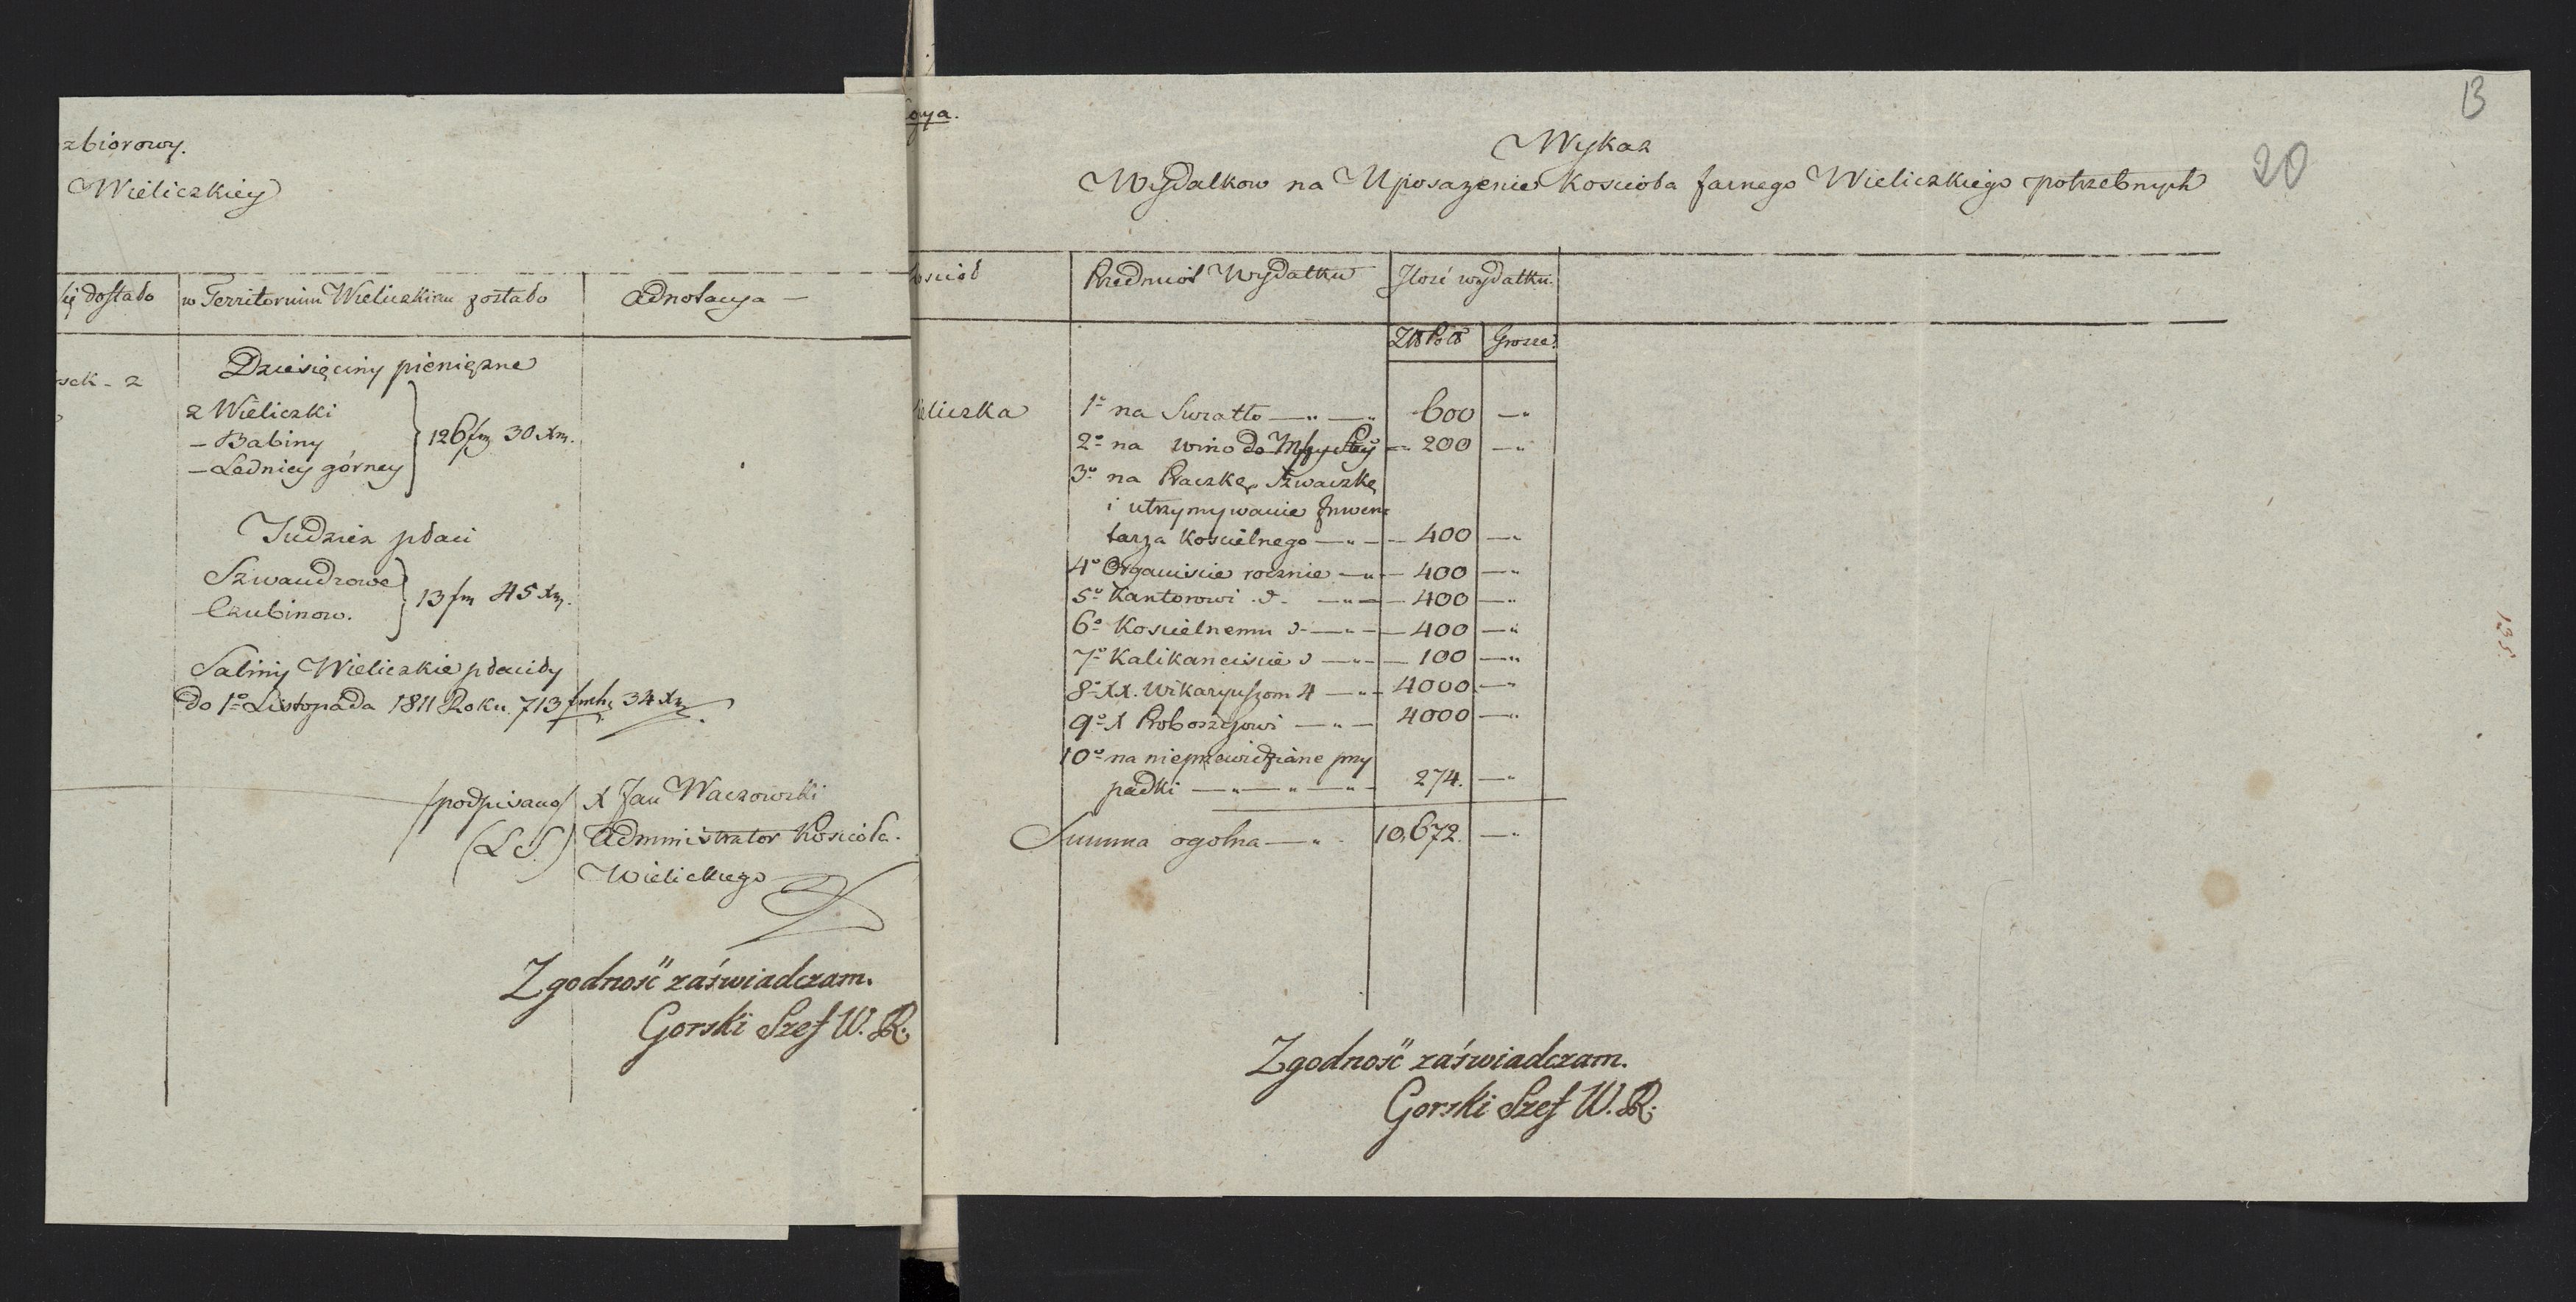 zbiorowy.
Wieliczkiey
dostało
w Territorium Wieliczkim zostało
Adnotacya —
Dziesięciny pienięzne
z Wieliczki
— Babiny
— Lednicy górney
126 fr. 30 Xr.
Tudziez płaci
Szwandrowe
Czubinow.
13 fr. 45 Xr.
Saliny Wieliczkie płaciły
do 1º Listopada 1811 Roku 713 34 Xr.
/podpisano/ X Jan Waczowski
(L S) Administrator Koscioła
Wielickiego
Zgodność zaświadczam.
Gorski Szef W. R.
13
20
Wykaz
Wydatkow na Uposazenie Koscioła farnego Wieliczkiego potrzebnych
osciół
Przedmiot Wydatku
Jlość wydatku.
Złł Poll
Grosze
ieliczka
1º na Swiatło — „ — „ 600 — „
2º na wino do Mszy Stey — 200 — „
3º na Praczkę, Szwaczkę
i utrzymywanie Jnwen=
tarza Koscielnego — „ — 400 — „
4º Organiscie rocznie — „ — 400 — „
5º Kantorowi d — „ — 400 — „
6º Koscielnemu d — „ — 400 — „
7º Kalikanciscie d — „ — 100 — „
8º XX. Wikaryuszom 4 — „ — 4000 — „
9º X Proboszczowi — „ — 4000 — „
10º na nieprzewidziane przy
padki — „ — „ — „ — 274. — „
Summa ogolna — „ 10,672. — „
Zgodność zaświadczam.
Gorski Szef W. R.
135.